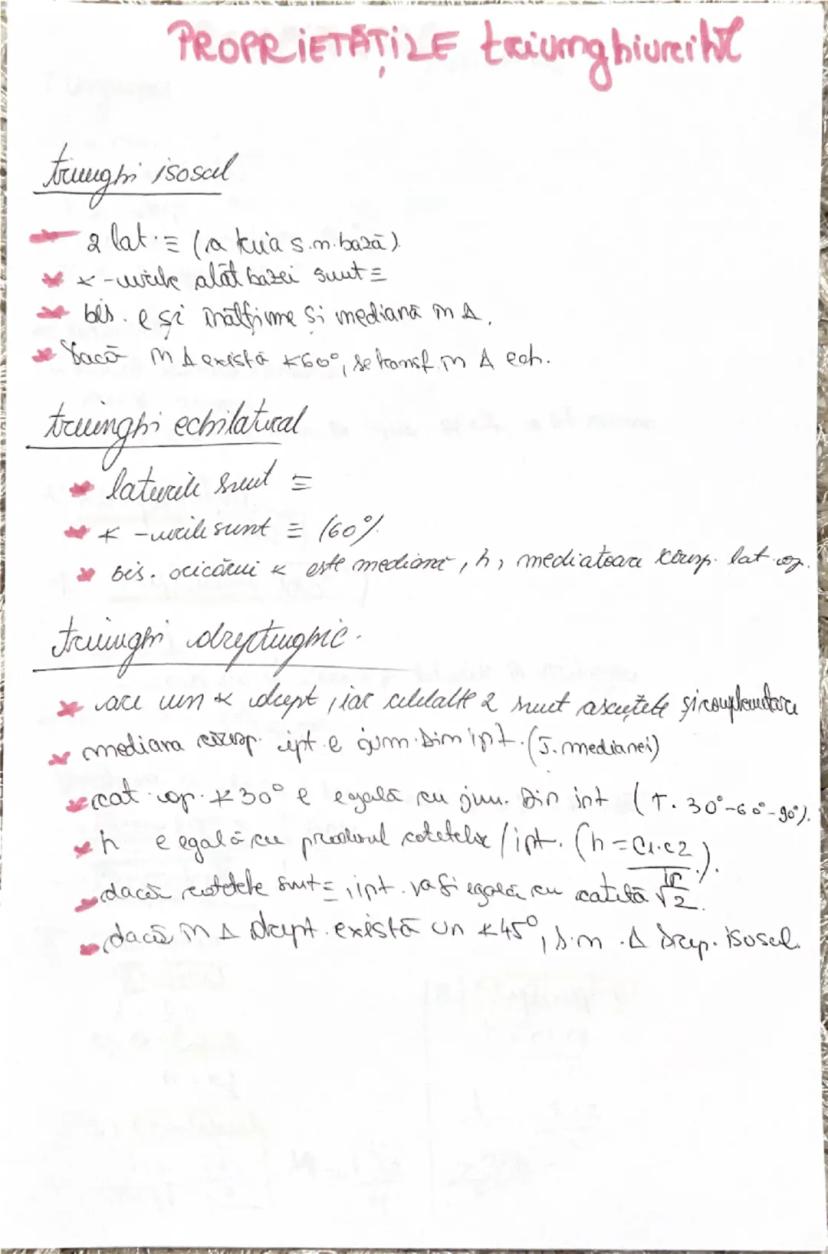 PROPRIETĂȚILE triunghiurilor
triunghi isoscel
2 lat. ≡ (a treia s.n. bază)
∢-urile alăt bazei sunt ≡
bis. e și înălțime și mediană în Δ.
Dacă în Δ există ∢60°, se transf. în Δ ech.
triunghi echilateral
laturile sunt ≡
∢-urile sunt ≡ (60°)
bis. oricărui ∢ este mediană, h, mediatoare coresp. lat. op.
triunghi dreptunghic.
are un ∢ drept, iar celelalte 2 sunt ascuțite și complementare
mediana coresp. ipt. e jum. din ipt. (T. medianei)
cat. op. ∢30° e egală cu jum. din ipt (T. 30°-60°-90°).
h e egală cu produsul catetelor / ipt. (h = c1·c2 / ip.).
dacă catetele sunt ≡, ipt. va fi egală cu cateta √2.
dacă în Δ drept. există un ∢45°, s.n. Δ drep. isoscel.